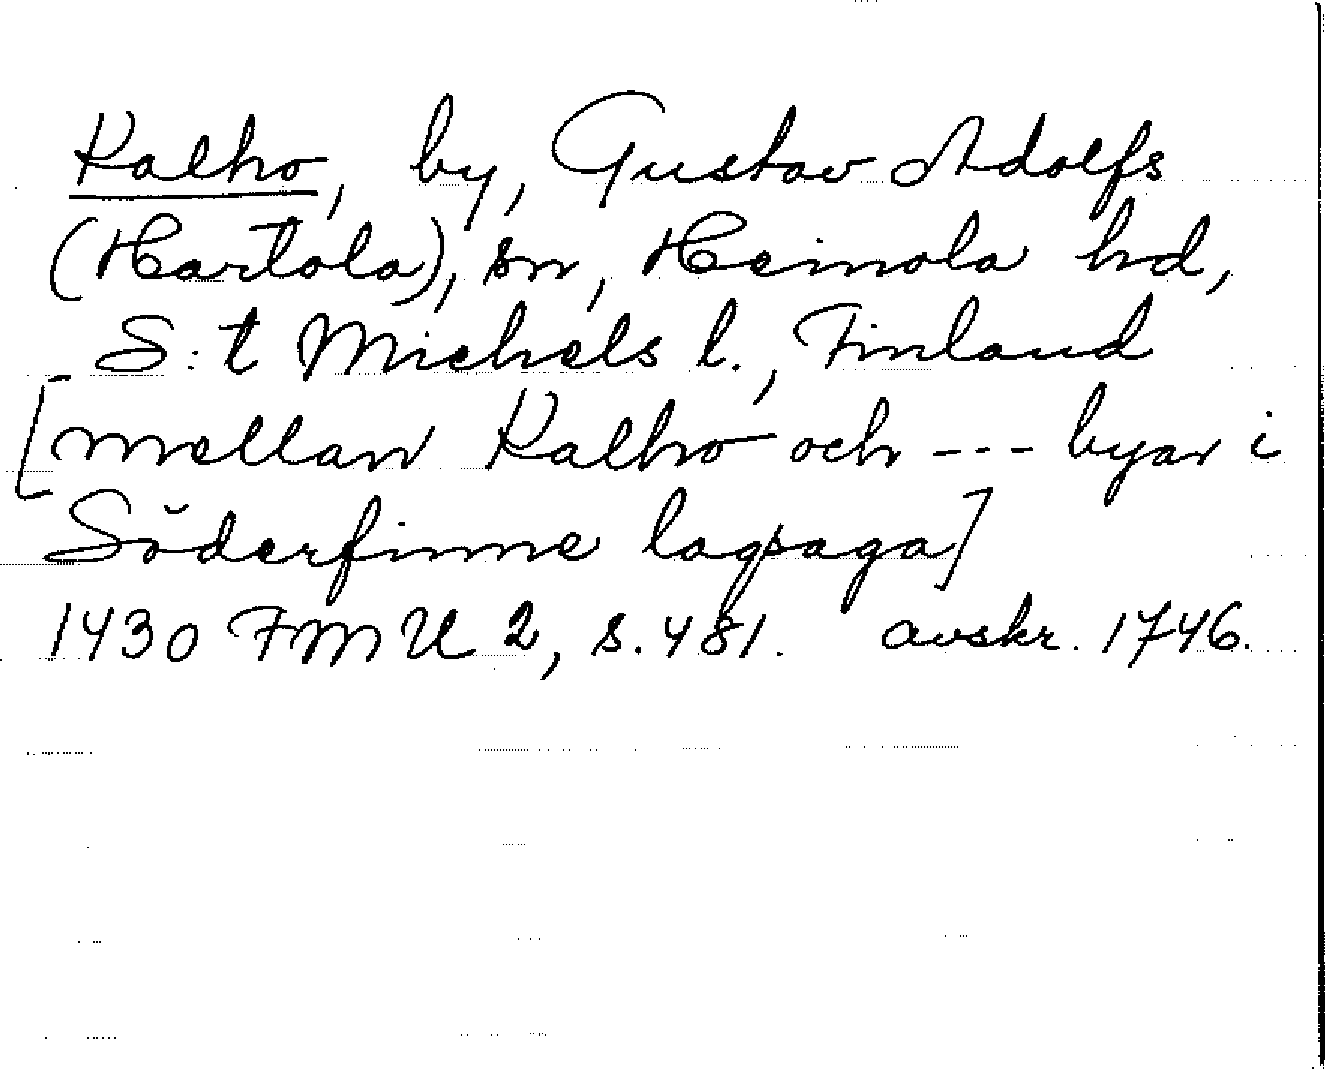 Kalho, by, Gustav Adolfs
(Hartola), sn, Heinola hd,
S:t Michels l., Finland
[mellan Kalho och --- byar i
Söderfinne lagsaga]
1430 FMU 2, s. 481. avskr. 1746.